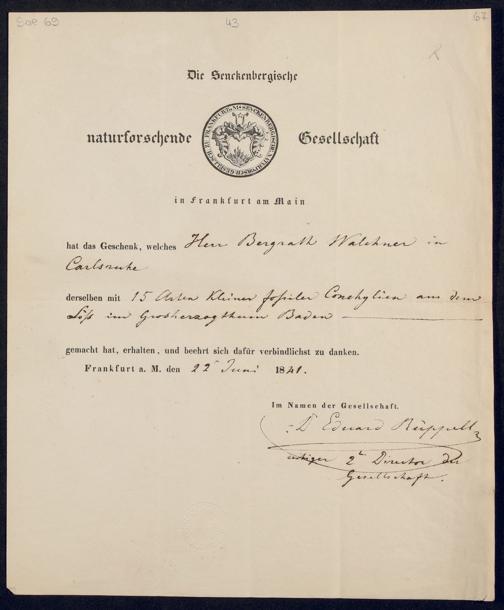 Soe 69
43
67
Die Senckenbergische
naturforschende Gesellschaft
in Frankfurt am Main
hat das Geschenk, welches Herr Bergrath Walchner in
Carlsruhe
derselben mit 15 Arten kleiner fossiler Conchylien aus dem
Löss im Grosherzogthum Baden
gemacht hat, erhalten, und beehrt sich dafür verbindlichst zu danken.
Frankfurt a. M. den 22 Juni 1841.
Im Namen der Gesellschaft.
Dr Eduard Rüppell
2r Director der
Gesellschaft.